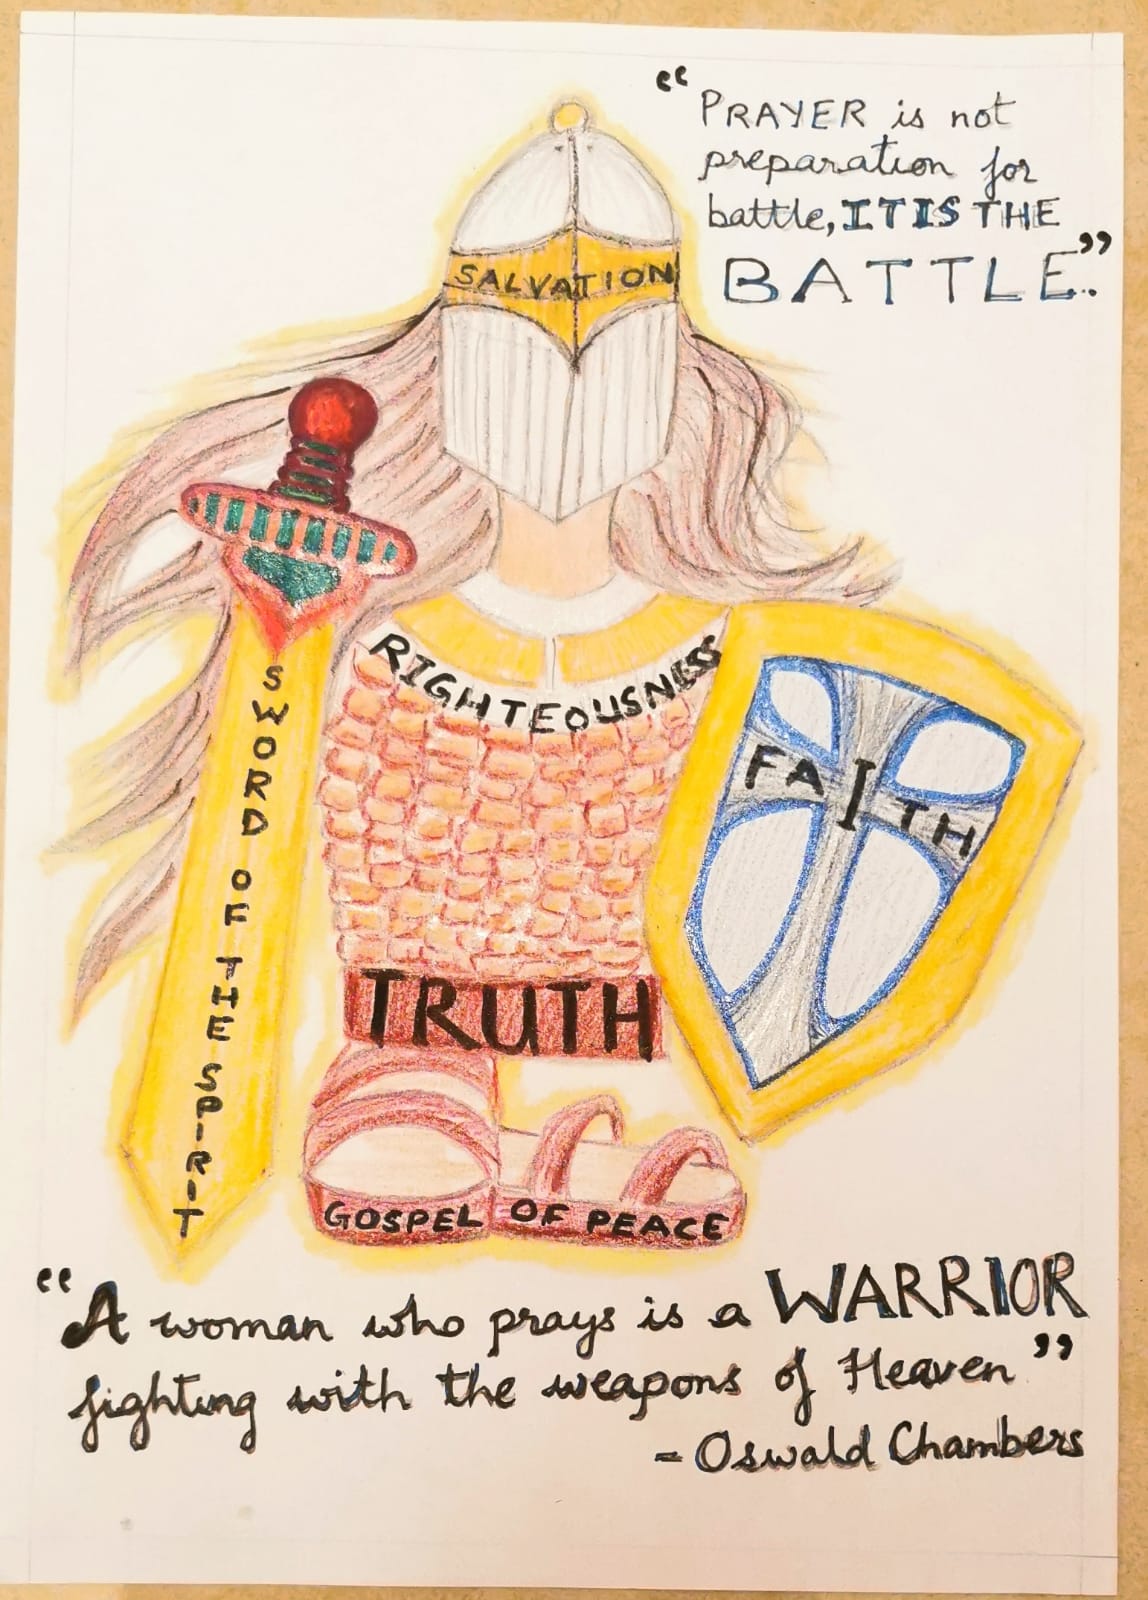 “PRAYER is not
preparation for
battle, IT IS THE
BATTLE.”
SALVATION
RIGHTEOUSNESS
SWORD OF THE SPIRIT
FAITH
TRUTH
GOSPEL OF PEACE
“A woman who prays is a WARRIOR
fighting with the weapons of Heaven”
- Oswald Chambers